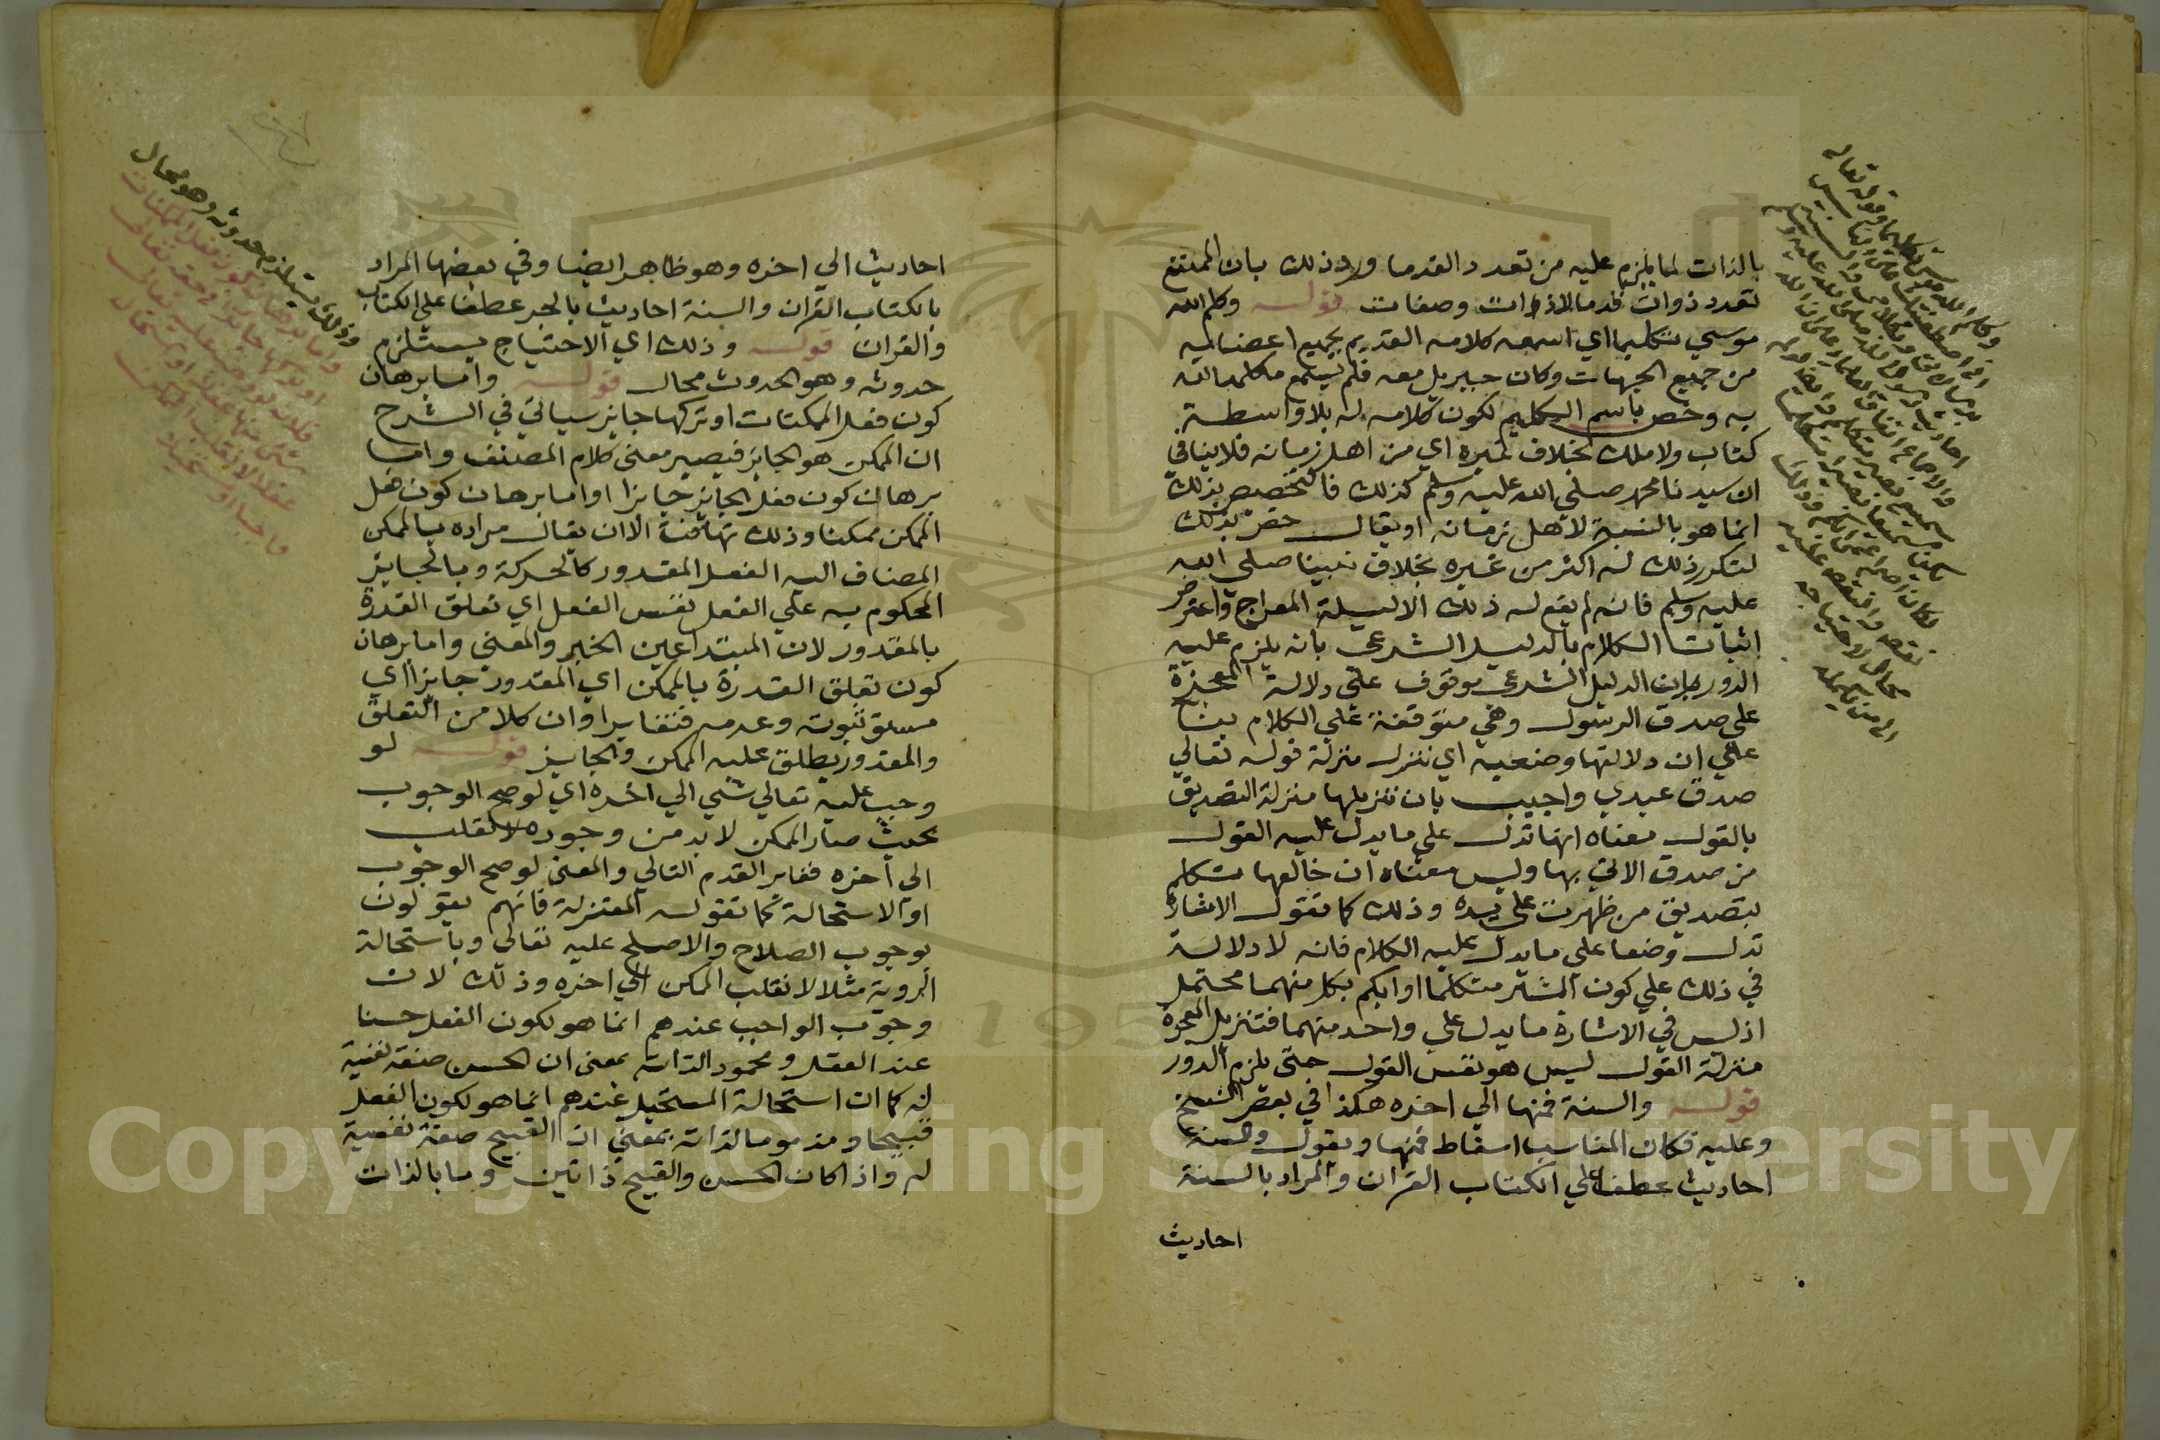 بالذات لما يلزم عليه من تعدد القدما ورد ذلك بان الممتنع
تعدد ذوات قدما لا ذات وصفات قوله وكلم الله
موسي تكليما اي اسمعه كلامه القديم بجميع اعضايه
من جميع الجهات وكان جبريل معه فلم يسمع ما كلمه الله
به وخص باسم الكليم لكون كلامه له بلا واسطة
كتاب ولا ملك بخلاف غيره اي من اهل زمانه فلا ينافي
ان سيدنا محمد صلي الله عليه وسلم كذلك فالتخصيص بذلك
انما هو بالنسبة لاهل زمانه او يقال خص بذلك
لتكرر ذلك له اكثر من غيره بخلاف نبينا صلي الله
عليه وسلم فانه لم يقع له ذلك الا ليلة المعراج واعترض
اثبات الكلام بالدليل الشرعي بانه يلزم عليه
الدور بان الدليل الشرعي موقوف علي دلالة المعجزة
علي صدق الرسول وهي متوقفة علي الكلام بنا
علي ان دلالتها وضعية اي تنزل منزلة قوله تعالي
صدق عبدي واجيب بان تنزيلها منزلة التصديق
بالقول معناه انها تدل علي ما يدل عليه القول
من صدق الاتي بها وليس معناه ان خالقها متكلم
بتصديق من ظهرت علي يده وذلك كما تقول الاشارة
تدل وضعا علي ما يدل عليه الكلام فانه لا دلالة
في ذلك علي كون المشير متكلما او ابكم بكل منهما محتمل
اذ ليس في الاشارة ما يدل علي واحد منهما فتنزيل المعجزة
منزلة القول ليس هو نفس القول حتي يلزم الدور
قوله والسنة فمنها الي اخره هكذا في بعض النسخ
وعليه فكان المناسب اسقاط فمنها ويقول والسنة
احاديث عطفا علي الكتاب القران والمراد بالسنة
احاديث
احاديث الي اخره وهو ظاهر ايضا وفي بعضها المراد
بالكتاب القران والسنة احاديث بالجر عطفا علي الكتاب
والقران قوله وذلك اي الاحتياج يستلزم
حدوثه وهو الحدوث محال قوله واما برهان
كون فعل الممكنات او تركها جايز سياتي في الشرح
ان الممكن هو الجايز فيصير معني كلام المصنف واما
برهان كون فعل الجايز جايزا او اما برهان كون فعل
الممكن ممكنا وذلك تهافت الا ان يقال مراده بالممكن
المضاف اليه الفعل المقدور كالحركة وبالجايز
المحكوم به علي الفعل نفس الفعل اي تعلق القدرة
بالمقدور لان المبتدا عين الخبر والمعني واما برهان
كون تعلق القدرة بالممكن اي المقدور جايزا اي
مستو ثبوته وعدمه فتغايرا وان كلا من التعلق
والمقدور يطلق عليه الممكن والجايز قوله لو
وجب عليه تعالي شي الي اخره اي لو صح الوجوب
بحيث صار الممكن لا بد من وجوده لانقلب
الي اخره فغاير القدم التالي والمعني لو صح الوجوب
او الاستحالة كما تقوله المعتزلة فانهم يقولون
بوجوب الصلاح والاصلح عليه تعالي وباستحالة
الروية مثلا لانقلب الممكن الي اخره وذلك لان
وجوب الواجب عندهم انما هو لكون الفعل حسنا
عند العقل ومحمود الذاته بمعني ان الحسن صفة نفسية
له كما ان استحالة المستحيل عندهم انما هو لكون الفعل
قبيحا ومذموما لذاته بمعني ان القبيح صفة نفسية
له واذا كان الحسن والقبيح ذاتين وما بالذات
وذلك يستلزم حدوثه وهو محال
واما برهان كون فعل الممكنات
او تركها جايزا في حقه تعالي
فلانه لو وجب عليه تعالي
شي منها عقلا او استحال
عقلا لانقلب الممكن
واجبا او مستحيلا
Copyright © King Saud University